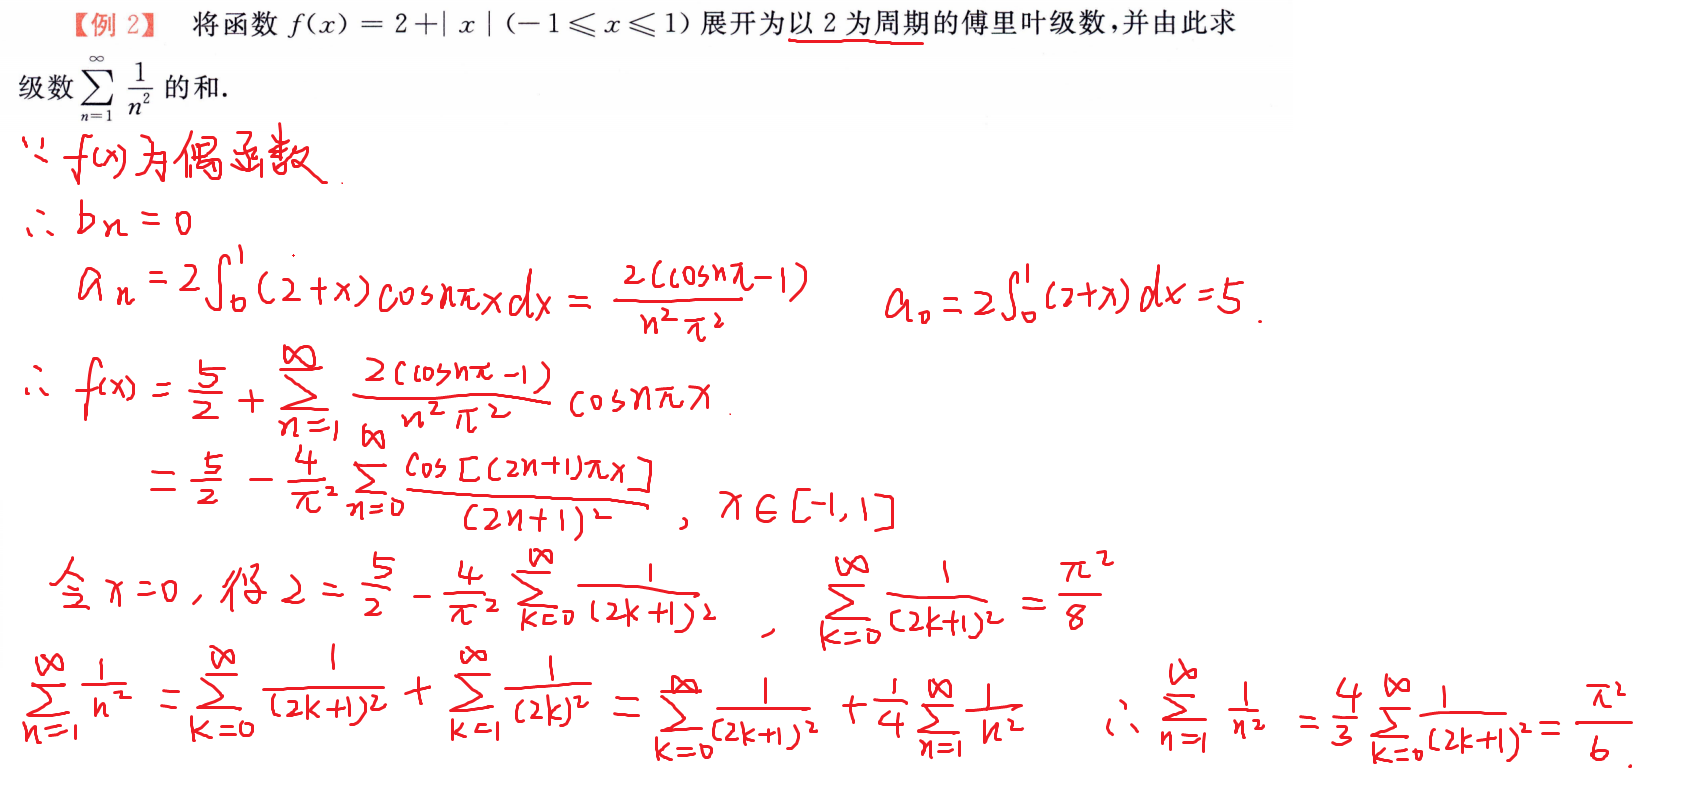 【例 2】 将函数 f(x) = 2 + | x | (-1 ≤ x ≤ 1) 展开为以 2 为周期的傅里叶级数,并由此求
级数 \sum_{n=1}^{∞} \frac{1}{n^2} 的和.
∵ f(x) 为偶函数.
∴ b_n = 0
a_n = 2∫_0^1 (2+x) cos nπx dx = \frac{2(cos nπ - 1)}{n^2 π^2}    a_0 = 2∫_0^1 (2+x) dx = 5.
∴ f(x) = \frac{5}{2} + \sum_{n=1}^{∞} \frac{2(cos nπ - 1)}{n^2 π^2} cos nπx.
= \frac{5}{2} - \frac{4}{π^2} \sum_{n=0}^{∞} \frac{cos[(2n+1)πx]}{(2n+1)^2}, x ∈ [-1, 1]
令 x = 0, 得 2 = \frac{5}{2} - \frac{4}{π^2} \sum_{k=0}^{∞} \frac{1}{(2k+1)^2}, \sum_{k=0}^{∞} \frac{1}{(2k+1)^2} = \frac{π^2}{8}
\sum_{n=1}^{∞} \frac{1}{n^2} = \sum_{k=0}^{∞} \frac{1}{(2k+1)^2} + \sum_{k=1}^{∞} \frac{1}{(2k)^2} = \sum_{k=0}^{∞} \frac{1}{(2k+1)^2} + \frac{1}{4} \sum_{n=1}^{∞} \frac{1}{n^2}    ∴ \sum_{n=1}^{∞} \frac{1}{n^2} = \frac{4}{3} \sum_{k=0}^{∞} \frac{1}{(2k+1)^2} = \frac{π^2}{6}.